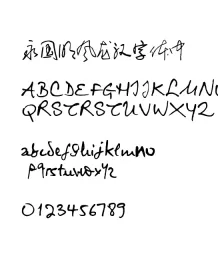 永国风龙汉字体中
ABCDEFGHIJKLMN
QRSTRSTUVWXYZ
abcdefghijklmno
pqrstuvwxyz
0123456789